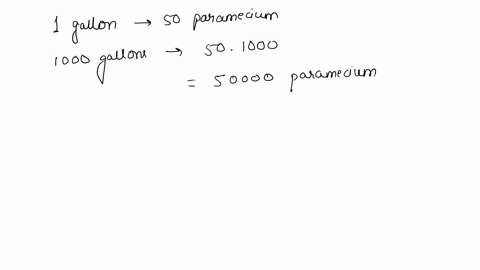 1 gallon → 50 paramecium
1000 gallons → 50 . 1000
= 50000 paramecium